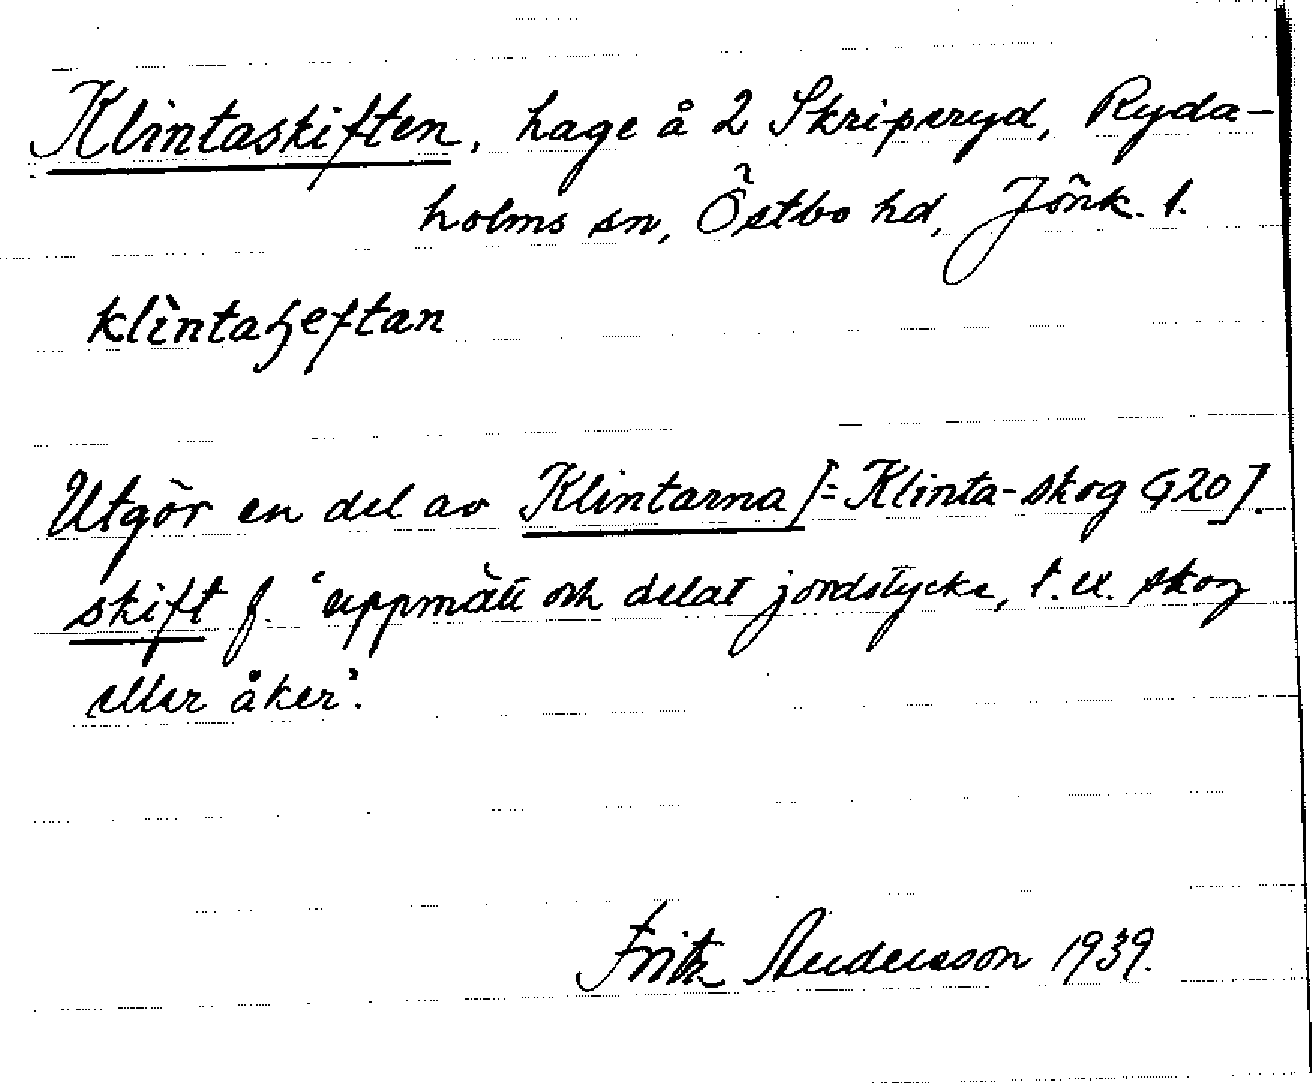 Klintaskiften, hage å 2 Skriperyd, Ryda-
holms sn, Östbo hd, Jönk. l.
klìntaʃeftan
Utgör en del av Klintarna [= Klinta-skog G20].
skift f. 'uppmätt och delat jordstycke, t. ex. skog
eller åker'.
Fritz Andersson 1939.